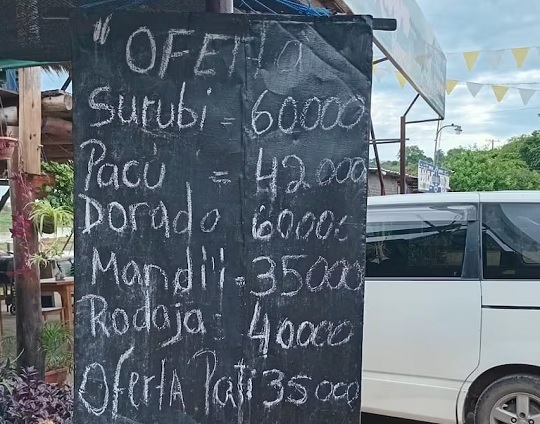 "OFERTA
Surubi = 60000
Pacú = 42.000
Dorado 60000
Mandi'i. 35000
Rodaja: 40000
OferTA Pati 35000